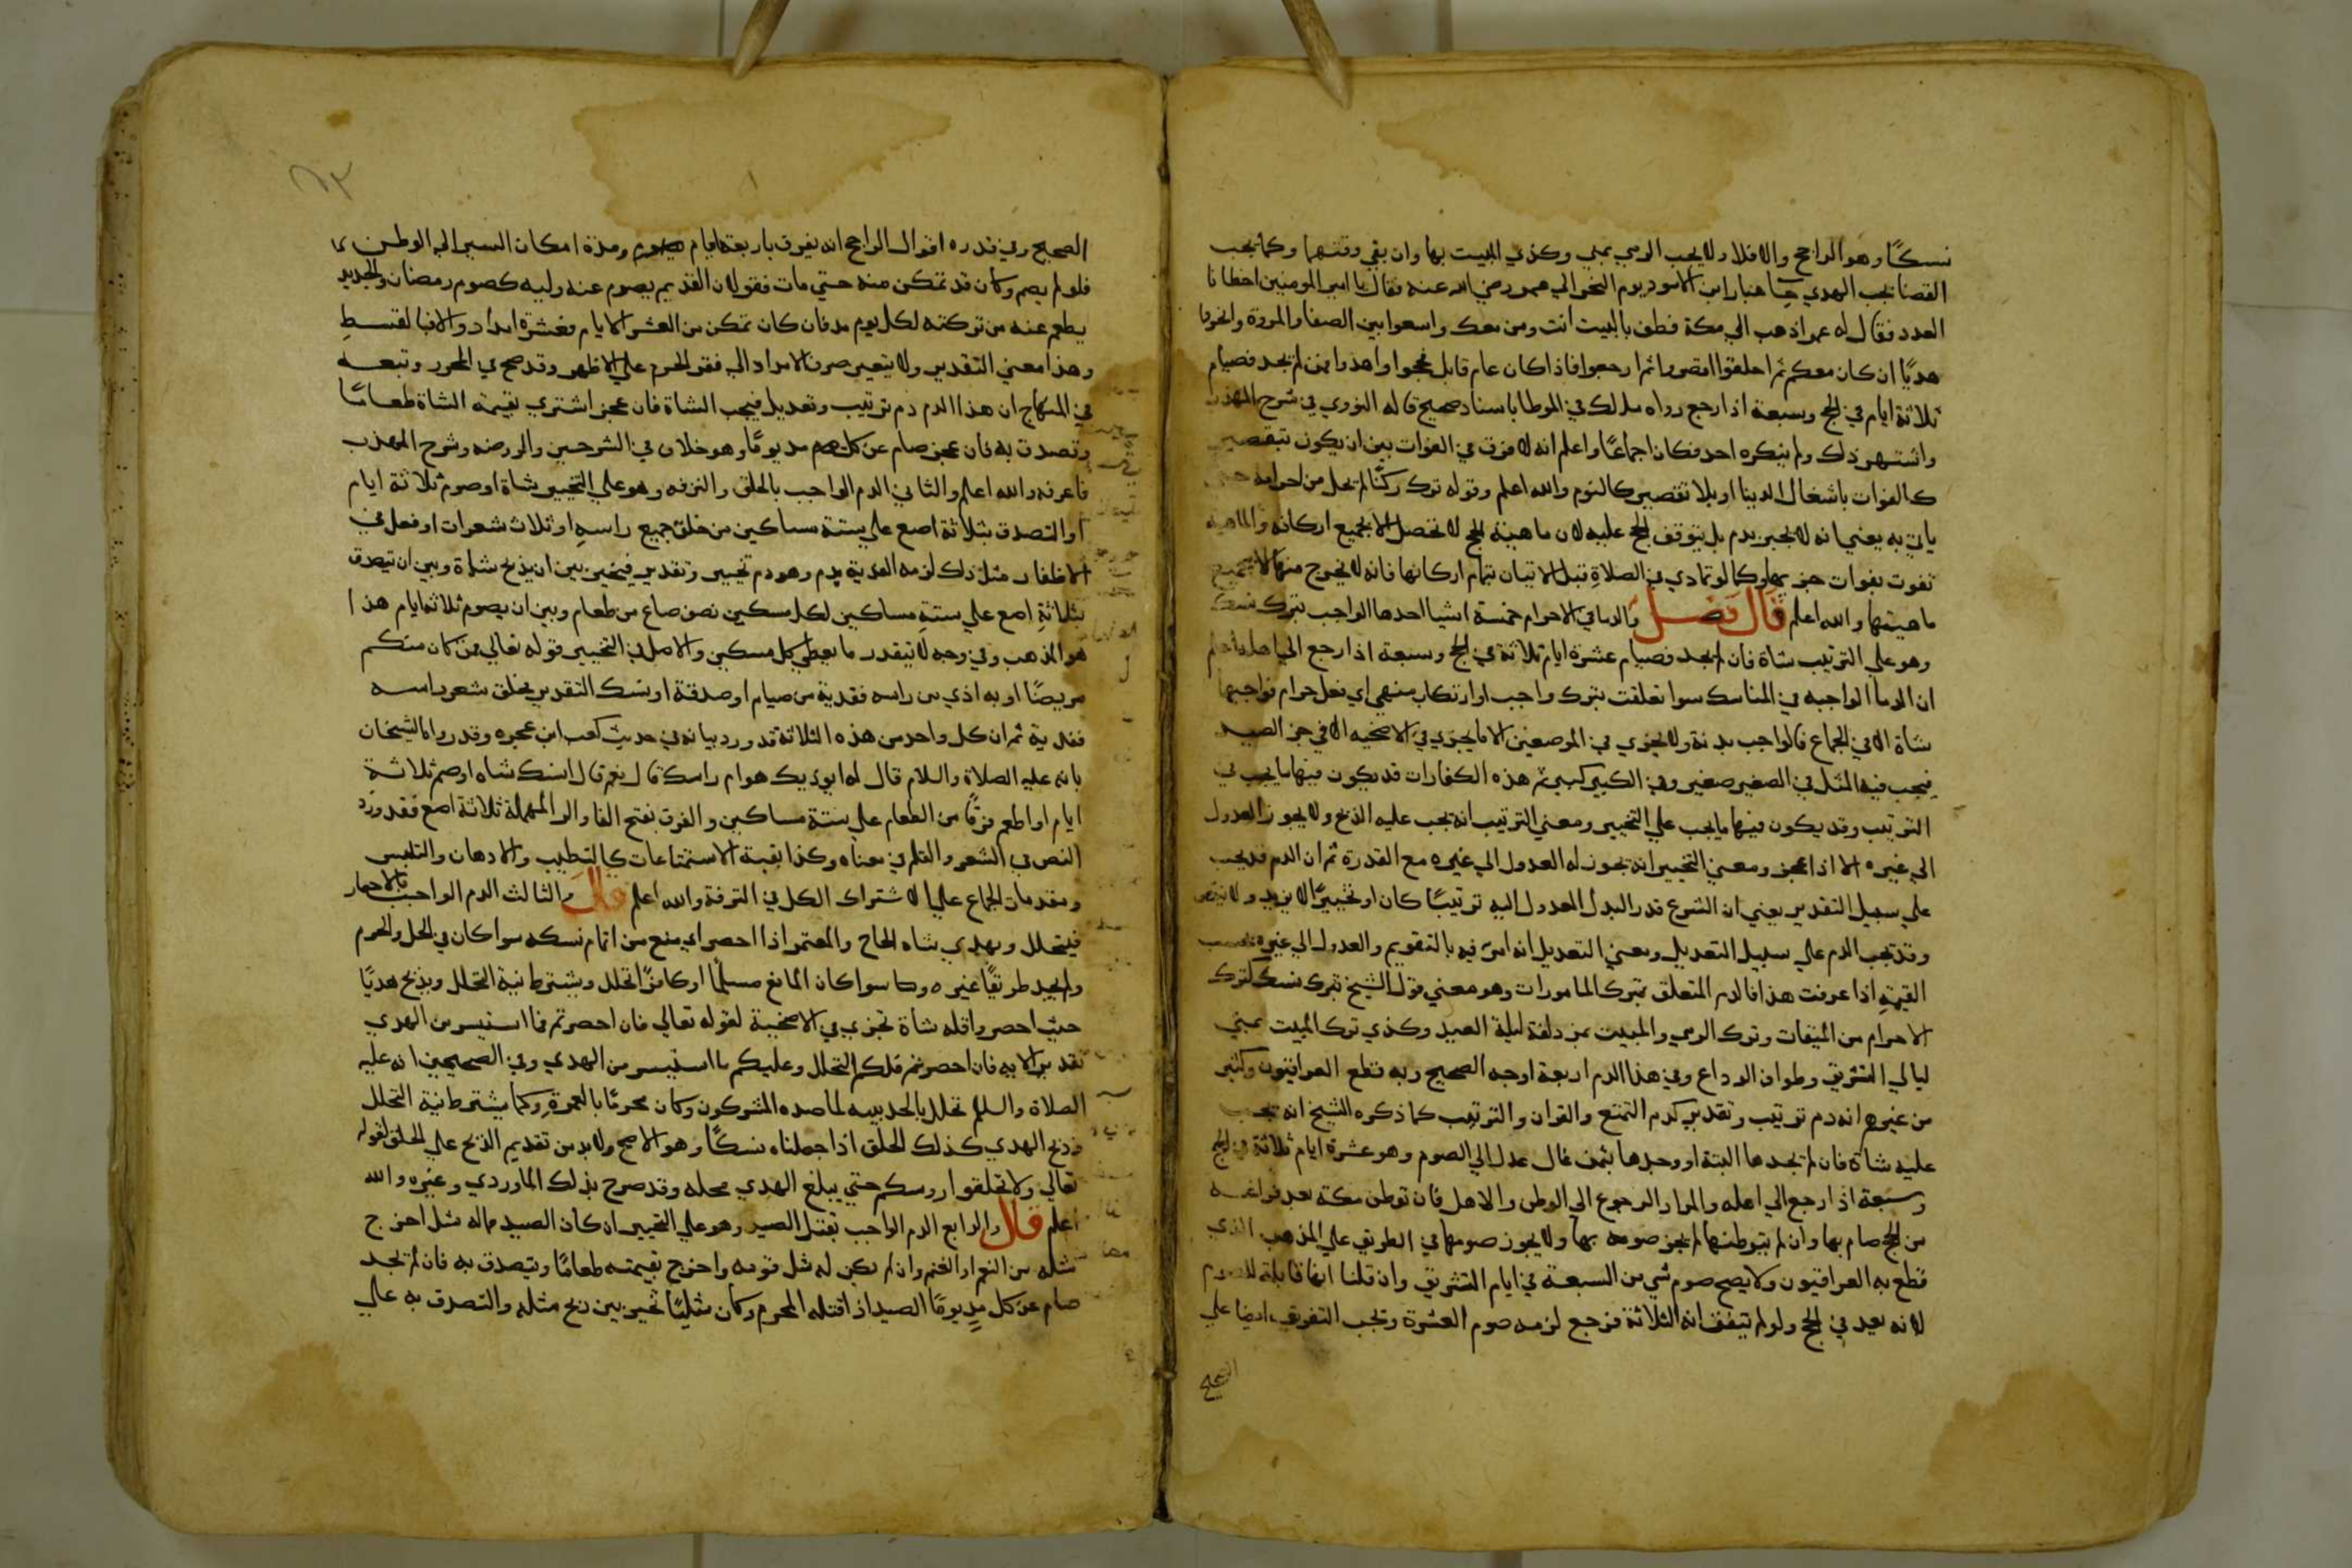 نسكا وهو الراجح والا فلا ولا يجب الرمي بمني وكذي المبيت بها وان بقي وقتهما وكما يجب
القضا يجب الهدي جا هبار ابن الاسود يوم النحر الي عمر رضي الله عنه فقال يا امير المومنين اخطانا
العدد فقال له عمر اذهب الي مكة فطف بالبيت انت ومن معك واسعوا بين الصفا والمروة وانحروا
هديا ان كان معكم ثم احلقوا او قصروا ثم ارجعوا فاذا كان عام قابل فحجوا واهدوا فمن لم يجد فصيام
ثلاثة ايام في الحج وسبعة اذا رجع رواه مالك في الموطا باسناد صحيح قاله النووي في شرح المهذب
واشتهر ذلك ولم ينكره احد فكان اجماعا واعلم انه لا فرق في الفوات بين ان يكون بتقصير
كالفوات باشغال الدنيا او بلا تقصير كالنوم والله اعلم وقوله ترك ركنا لم يحل من احرامه حتي
ياتي به يعني انه لا يجبر بدم بل يتوقف الحج عليه لان ماهية الحج لا تحصل الا بجميع اركانه والماهية
تفوت بفوات جزيها وكما لو تمادي في الصلاة قبل الاتيان بتمام اركانها فانه لا يخرج منها الا بجميع
ماهيتها والله اعلم قال فصل والدما في الاحرام خمسة اشيا احدها الواجب بترك نسك
وهو علي الترتيب شاة فان لم يجد فصيام عشرة ايام ثلاثة في الحج وسبعة اذا رجع الي اهله اعلم
ان الدما الواجبه في المناسك سوا تعلقت بترك واجب او ارتكاب منهي اي فعل حرام فواجبها
شاة الا في الجماع فالواجب بدنة ولا يجزي في الموضعين الا ما يجزي في الاضحيه الا في جز الصيد
فيجب فيه المثل في الصغير صغير وفي الكبير كبير ثم هذه الكفارات قد يكون فيها ما يجب في
الترتيب وقد يكون فيها ما يجب علي التخيير ومعني الترتيب انه يجب عليه الذبح ولا يجوز العدول
الي غيره الا اذا عجز ومعني التخيير انه يجوز له العدول الي غيره مع القدرة ثم ان الدم قد يجب
علي سبيل التقدير يعني ان الشرع قدر البدل المعدول اليه ترتيبا كان او تخييرا لا يزيد ولا ينقص
وقد يجب الدم علي سبيل التعديل ومعني التعديل انه امر فيه بالتقويم والعدول الي غيره بحسب
القيمة اذا عرفت هذا فالدم المتعلق بترك المامورات وهو معني قول الشيخ بترك نسك كترك
الاحرام من الميقات وترك الرمي والمبيت بمزدلفة ليلة العيد وكذي ترك المبيت بمني
ليالي التشريق وطواف الوداع وفي هذا الدم اربعة اوجه الصحيح وبه قطع العراقيون وكثير
من غيرهم انه دم ترتيب وتقدير كدم التمتع والقران والترتيب كما ذكره الشيخ انه يجب
عليه شاة فان لم يجدها البتة او وجدها بثمن غال عدل الي الصوم وهو عشرة ايام ثلاثة في الحج
وسبعة اذا رجع الي اهله والمراد الرجوع الي الوطن والاهل فان توطن مكة بعد فراغه
من الحج صام بها وان لم يتوطنها لم يجز صومه بها ولا يجوز صومها في الطريق علي المذهب الذي
قطع به العراقيون ولا يصح صوم شي من السبعة في ايام التشريق وان قلنا انها قابلة للصوم
لانه بعيد في الحج ولو لم يتفق انه الثلاثة فرجع لزمه صوم العشرة ويجب التفريق ايضا علي
الصحيح
الصحيح وفي قدره اقوال الراجح انه يفرق باربعة ايام ومدة امكان السير الي الوطن
فلو لم يصم وكان قد تمكن منه حتي مات فقولان القديم يصوم عنه وليه كصوم رمضان والجديد
يطعم عنه من تركته لكل يوم مد فان كان تمكن من العشر الايام فعشرة امداد والا فبالقسط
وهذا معني التقدير ولا يتعين صرف الامداد الي فقر الحرم علي الاظهر وقد صحح في المحرر وتبعه
في المنهاج ان هذا الدم دم ترتيب وتعديل فيجب الشاة فان عجز اشتري بقيمة الشاة طعاما
وتصدق به فان عجز صام عن كل مد يوما وهو خلاف في الشرحين والروضه وشرح المهذب
فاعرفه والله اعلم والثاني الدم الواجب بالحلق والترفه وهو علي التخيير شاة او صوم ثلاثة ايام
او التصدق بثلاثة اصع علي ستة مساكين من حلق جميع راسه او ثلاث شعرات او فعل في
الاظفار مثل ذلك لزمه الفدية بدم وهو دم تخيير وتقدير فيتخير بين ان يذبح شاة وبين ان يتصدق
بثلاثة اصع علي ستة مساكين لكل مسكين نصف صاع من طعام وبين ان يصوم ثلاثة ايام هذا
هو المذهب وفي وجه لا يتقدر ما يعطي كل مسكين والاصل في التخيير قوله تعالي فمن كان منكم
مريضا او به اذي من راسه ففدية من صيام او صدقة او نسك التقدير يحلق شعر راسه
ففدية ثم ان كل واحد من هذه الثلاثة قد ورد بيانه في حديث كعب ابن عجره وقد رواه الشيخان
بانه عليه الصلاة والسلام قال له ايوذيك هوام راسك قال نعم قال انسك شاه او صم ثلاثة
ايام او اطعم فرقا من الطعام علي ستة مساكين والفرق بفتح الفا والرا المهملة ثلاثة اصع فقد ورد
النص في الشعر والقلم في معناه وكذا بقية الاستمتاعات كالتطيب والادهان والتلبس
ومقدمات الجماع علي الاشتراك الكل في الترفة والله اعلم قال والثالث الدم الواجب بالاحصار
فيتحلل ويهدي شاه الحاج والمعتمر اذا احصر اي منع من اتمام نسكه سوا كان في الحل او الحرم
ولم يجد طريقا غيره سوا كان المانع مسلما او كافرا تحلل ويشترط نية التحلل ويذبح هديا
حيث احصر واقله شاة تجزي في الاضحية لقوله تعالي فان احصرتم فما استيسر من الهدي
تقدير الايه فان احصرتم فلكم التحلل وعليكم ما استيسر من الهدي وفي الصحيحين انه عليه
الصلاة والسلام تحلل بالحديبيه لما صده المشركون وكان محرما بالعمرة وكما يشترط نية التحلل
وذبح الهدي كذلك الحلق اذا جعلناه نسكا وهو الاصح ولا بد من تقديم الذبح علي الحلق لقوله
تعالي ولا تحلقوا روسكم حتي يبلغ الهدي محله وقد صرح بذلك الماوردي وغيره والله
اعلم قال والرابع الدم الواجب بقتل الصيد وهو علي التخيير ان كان الصيد مما له مثل اخرج
مثله من النعم او الغنم وان لم يكن له مثل قومه واخرج بقيمته طعاما ويتصدق به فان لم يجد
صام عن كل مد يوما الصيد اذا قتله المحرم وكان مثليا تخير بين ذبح مثله والتصدق به علي